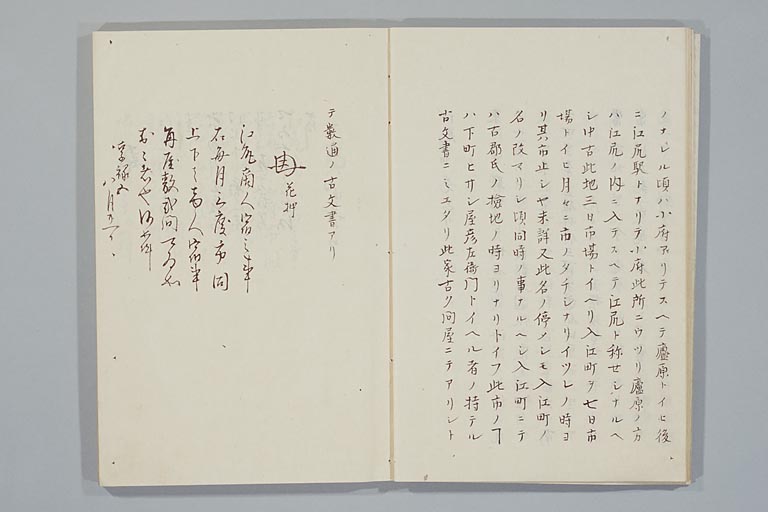 ノナレル頃ハ小府アリテスヘテ廬原トイヒ後
ニ江尻駅トナリテ小府此所ニウツリ廬原ノ方
ハ江尻ノ内ニ入テスヘテ江尻ト称せシナルヘ
シ中古此地三日市場トイヘリ入江町ヲ七日市
場トイヒ月々ニ市ノタチシナリイツレノ時ヨ
リ其市止シヤ未詳又此名ノ停メシモ入江町ノ
名ノ改マリシ頃同時ノ事ナルヘシ入江町ニテ
ハ古郡氏ノ検地ノ時ヨリナリトイフ此市ノ丁
ハ下町ヒサシ屋彦左衛門トイヘル者ノ持テル
古文書ニミエタリ此家古ク問屋ニテアリシト
テ数通ノ古文書アリ
花押
江尻商人宿之事
右毎月三度市同
上下之商人宿事
毎屋敷弐間
享禄五
八月